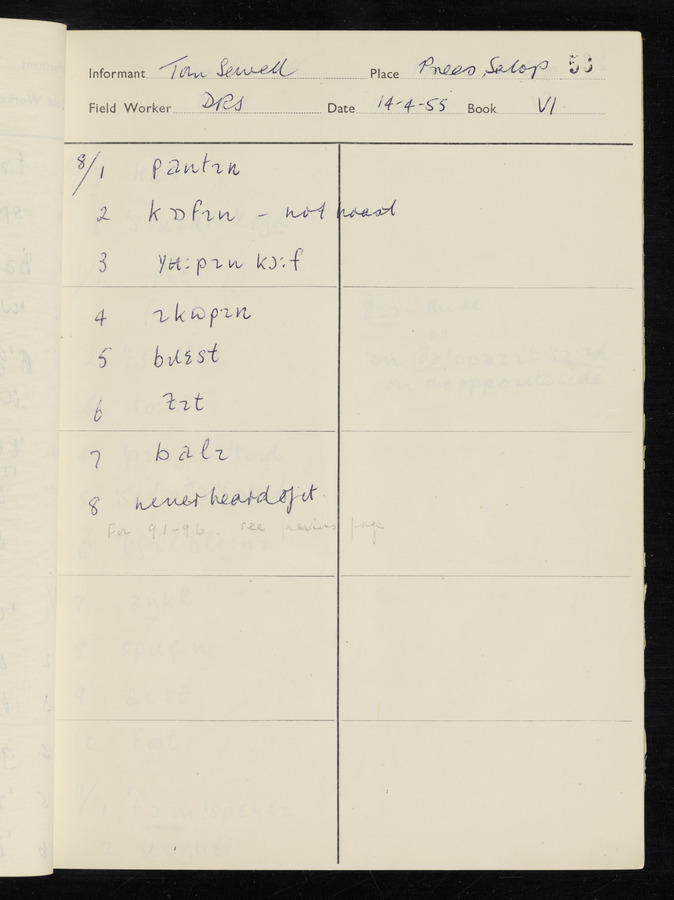 Informant Tom Sewell Place Prees, Salop 53
Field Worker DRS Date 14-4-55 Book VI
8/1 pantɪn
2 kɒfɪn – not hoast
3 ɪn kɔːf
4 ɪkɒpɪn
5 bɹɛst
6 zɪt
7 balɪ
8 never heard of it
For 9.1–9.6. see previous page